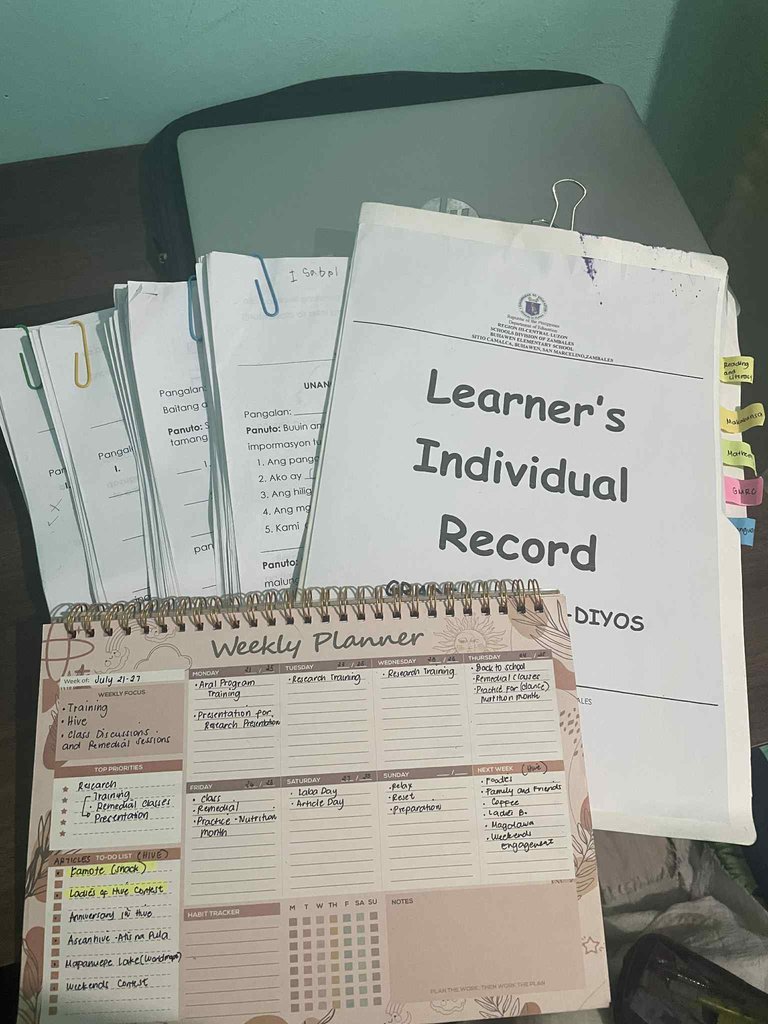 I sabel
Pangalan:
Baitang a
Panuto: S
tamang
pan
Pangal
I.
Pan
I.
UNAN
Pangalan:
Panuto: Buuin an
impormasyon tu
1. Ang panga
2. Ako ay
3. Ang hilig
4. Ang mg
5. Kami
Panuto:
malun
Republic of the Philippines
Department of Education
REGION III-CENTRAL LUZON
SCHOOLS DIVISION OF ZAMBALES
BUHAWEN ELEMENTARY SCHOOL
SITIO CAMALCA, BUHAWEN, SAN MARCELINO, ZAMBALES
Learner's
Individual
Record
-DIYOS
ALES
Reading
and
Literacy
Makabansa
Mathem
GMRC
Weekly Planner
Week of: July 21-27
WEEKLY FOCUS
• Training
• Hive
• Class Discussions
and Remedial Sessions
TOP PRIORITIES
Research
Training
• Remedial Classes
Presentation
ARTICLES TO-DO LIST (HIVE)
Kamote (snack)
Ladies of Hive Contest
Anniversary in Hive
Ascanhive - Atis na Pula
Mapanuepe Lake (Wordmap)
Weekends Contest
MONDAY
• Aral Program
Training
• Presentation for
Research Presentation
TUESDAY
• Research Training
WEDNESDAY
• Research Training
THURSDAY
• Back to school
• Remedial Classes
• Practice for (dance)
Nutrition month
FRIDAY
• Class
• Remedial
• Practice - Nutrition
month
SATURDAY
• Laba Day
• Article Day
SUNDAY
• Relax
• Reset
• Preparation
NEXT WEEK (Hive)
• Foodies
• Family and Friends
• Coffee
• Ladies B.
• Weekends
Engagement
HABIT TRACKER
M T W TH F SA SU
NOTES
PLAN THE WORK, THEN WORK THE PLAN